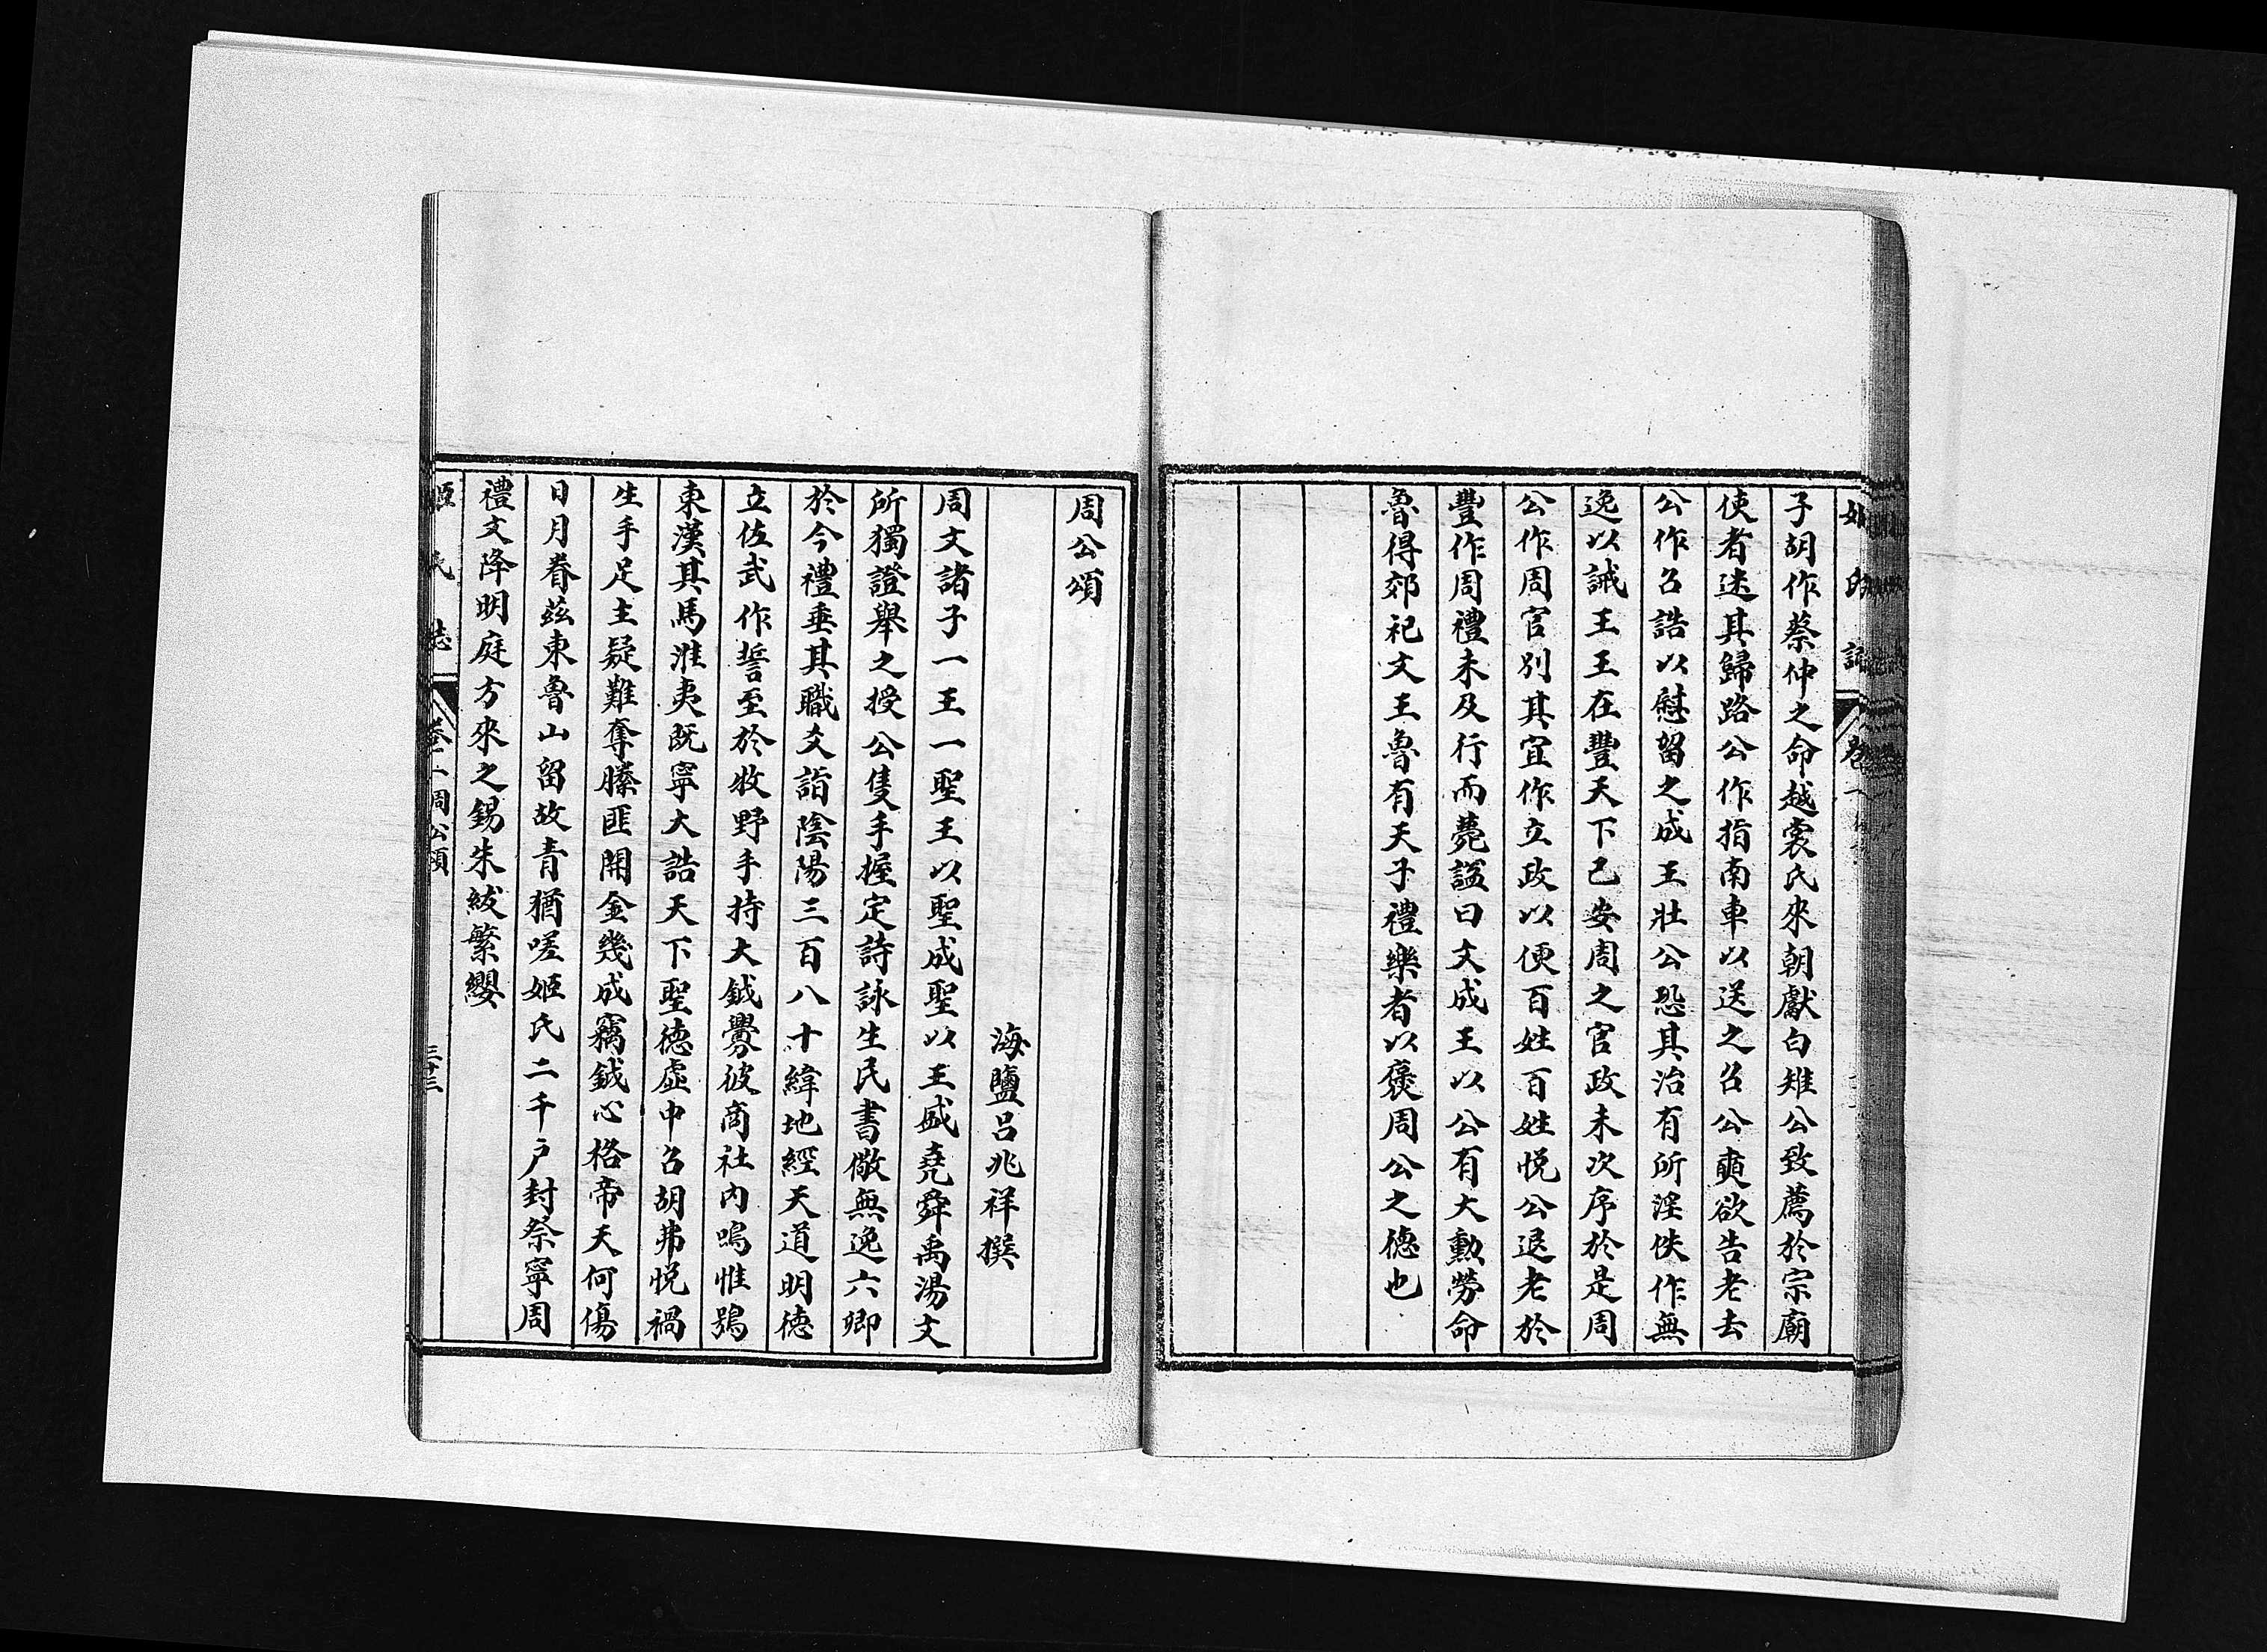 子胡作蔡仲之命越裳氏來朝獻白雉公致薦於宗廟
使者迷其歸路公作指南車以送之召公奭欲告老去
公作召誥以慰留之成王壯公恐其治有所淫佚作無
逸以誡王王在豐天下已安周之官政未次序於是周
公作周官別其宜作立政以便百姓百姓悅公退老於
豐作周禮未及行而薨諡曰文成王以公有大勳勞命
魯得郊祀文王魯有天子禮樂者以褒周公之德也
周公頌
海鹽呂兆祥撰
周文諸子一王一聖王以聖成聖以王盛堯舜禹湯文
所獨證舉之授公隻手握定詩詠生民書儆無逸六卿
於今禮垂其職爻詣陰陽三百八十緯地經天道明德
立佐武作誓至於牧野手持大鉞釁彼商社內嗚惟鴞
東漢其馬淮夷既寧大誥天下聖德虛中召胡弗悅禍
生手足主疑難奪縢匪開金幾成竊鉞心格帝天何傷
日月眷茲東魯山留故青猶嗟姬氏二千戶封祭寧周
禮文降明庭方來之錫朱紱繁纓
姬氏誌 卷一 周公頌 三十三